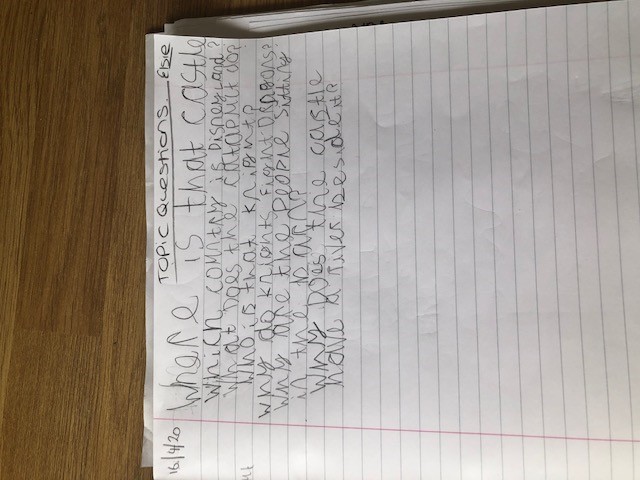 16/4/20
TOPIC QUESTIONS. Elsie
Where is that castle
which comtry is Disney Land?
What does the catapult do?
Who is that knight?
why do knights Fight Dragons?
Why are the people sitting
in the barn?
Why Does the castle
have a river